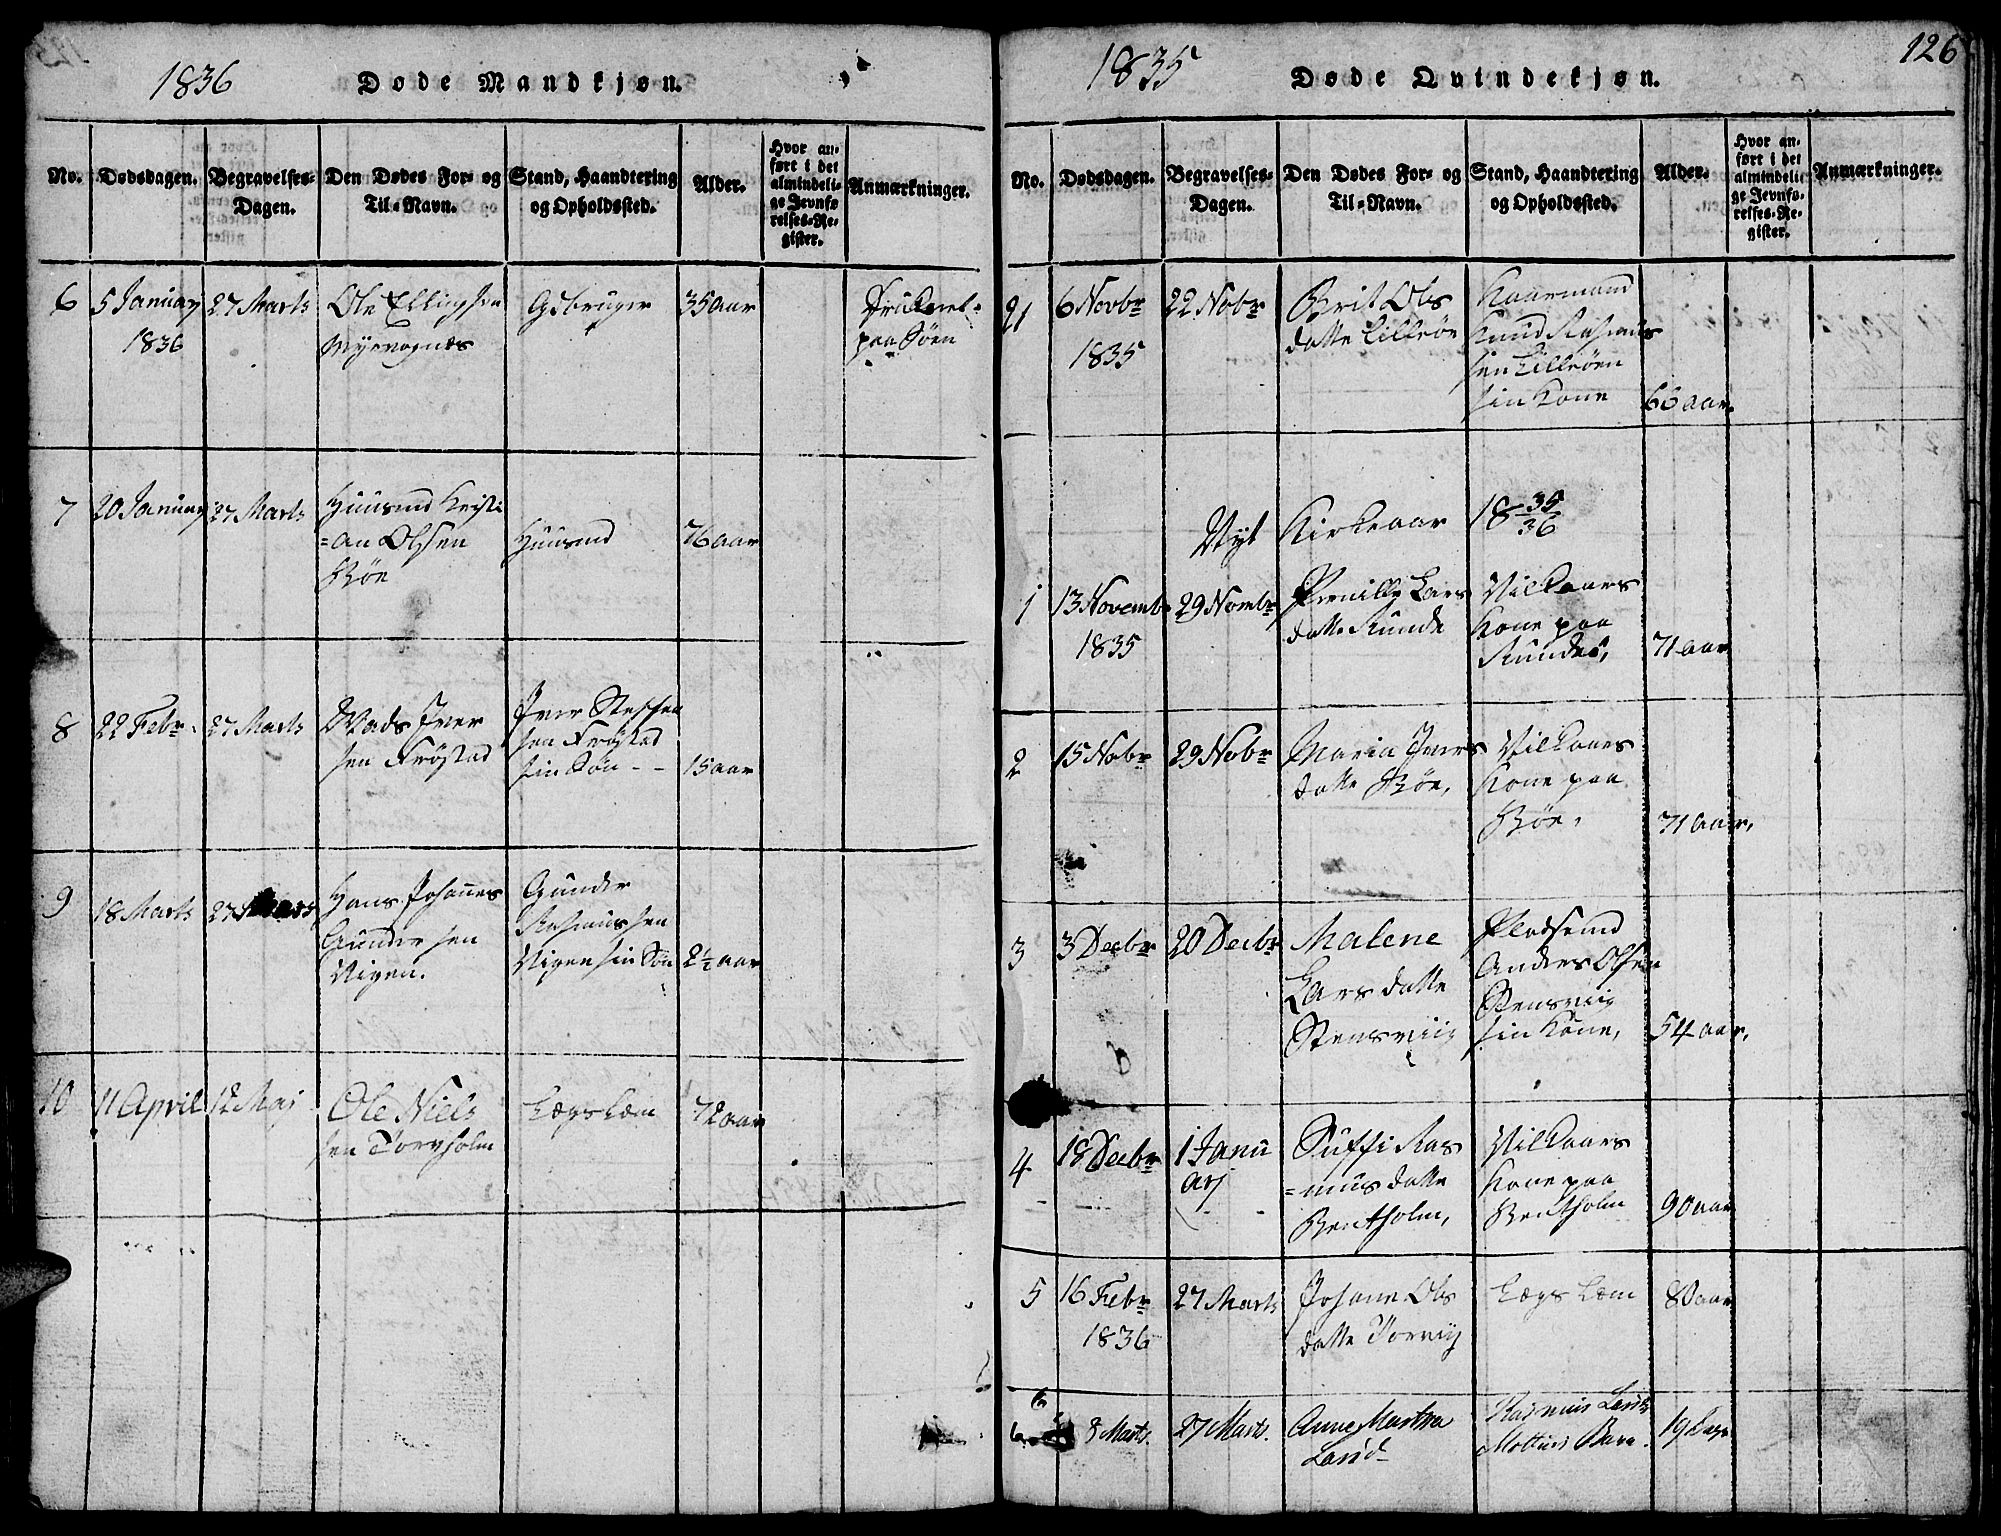 1836
Døde Mandkjøn.
No.
Dødsdagen.
Begravelses-
Dagen.
Den Dødes For- og
Til-Navn.
Stand, Haandtering
og Opholdssted.
Alder.
Hvor an-
ført i det
almindeli-
ge Jevnfø-
relses-Re-
gister.
Anmærkninger.
6
5 Januarj
1836
27 Marts
Ole Ellingsen
Myrvognæs
Gbruger
35 aar
Druknet
paa Søen
7
20 Januarj
27 Marts
Huusmd Kristi
=an Olsen
Bøe
Huusmd
76 aar
8
22 Febr.
27 Marts
Mads Iver
sen Frøstad
Iver Steffen
sen Frøstad
sin Søn - -
15 aar
9
18 Marts
27 Marts
Hans Johannes
Gunder sen
Vigen.
Gunder
Rasmussen
Vigen sin Søn
2½ aar
10
11 April
12 Maj
Ole Niels
sen Torvholm
Lægslem
72 aar
1835
Døde Qvindekjøn.
126
No.
Dødsdagen.
Begravelses-
Dagen.
Den Dødes For- og
Til-Navn.
Stand, Haandtering
og Opholdssted.
Alder.
Hvor an-
ført i det
almindeli-
ge Jevnfø-
relses-Re-
gister.
Anmærkninger.
21
6 Novbr
1835
22 Nobr
Brit Ols
datte Lillrøe
Kaarmand
Knud Rasmus
sen Lillrøen
sin Kone
66 aar.
Nyt Kirkeaar 18 35/36
1
13 Novemb
1835
29 Nombr
Pernille Lars
datte Runde
Vilkaars
Kone paa
Runde,
71 aar
2
15 Nobr
29 Nobr
Maria Ivers
datte Bøe,
Vilkaars
Kone paa
Bøe,
71 aar,
3
3 Decbr
20 Decbr
Malene
Lars datte
Stensviig
Pladsemd
Anders Olsen
Stensviig
sin Kone,
54 aar,
4
18 Decbr
1 Janu
arj
Siffi Ras
=mus datte
Bentholm,
Vilkaars
Kone paa
Bentholm
90 aar
5
16 Febr
1836
27 Marts
Johane Ols
datte Torvig
Lægslem
80 aar
6
6
8 Marts.
27 Marts.
Anne Martha
Larsd-
Rasmus Lars
Barn.
19 Dage